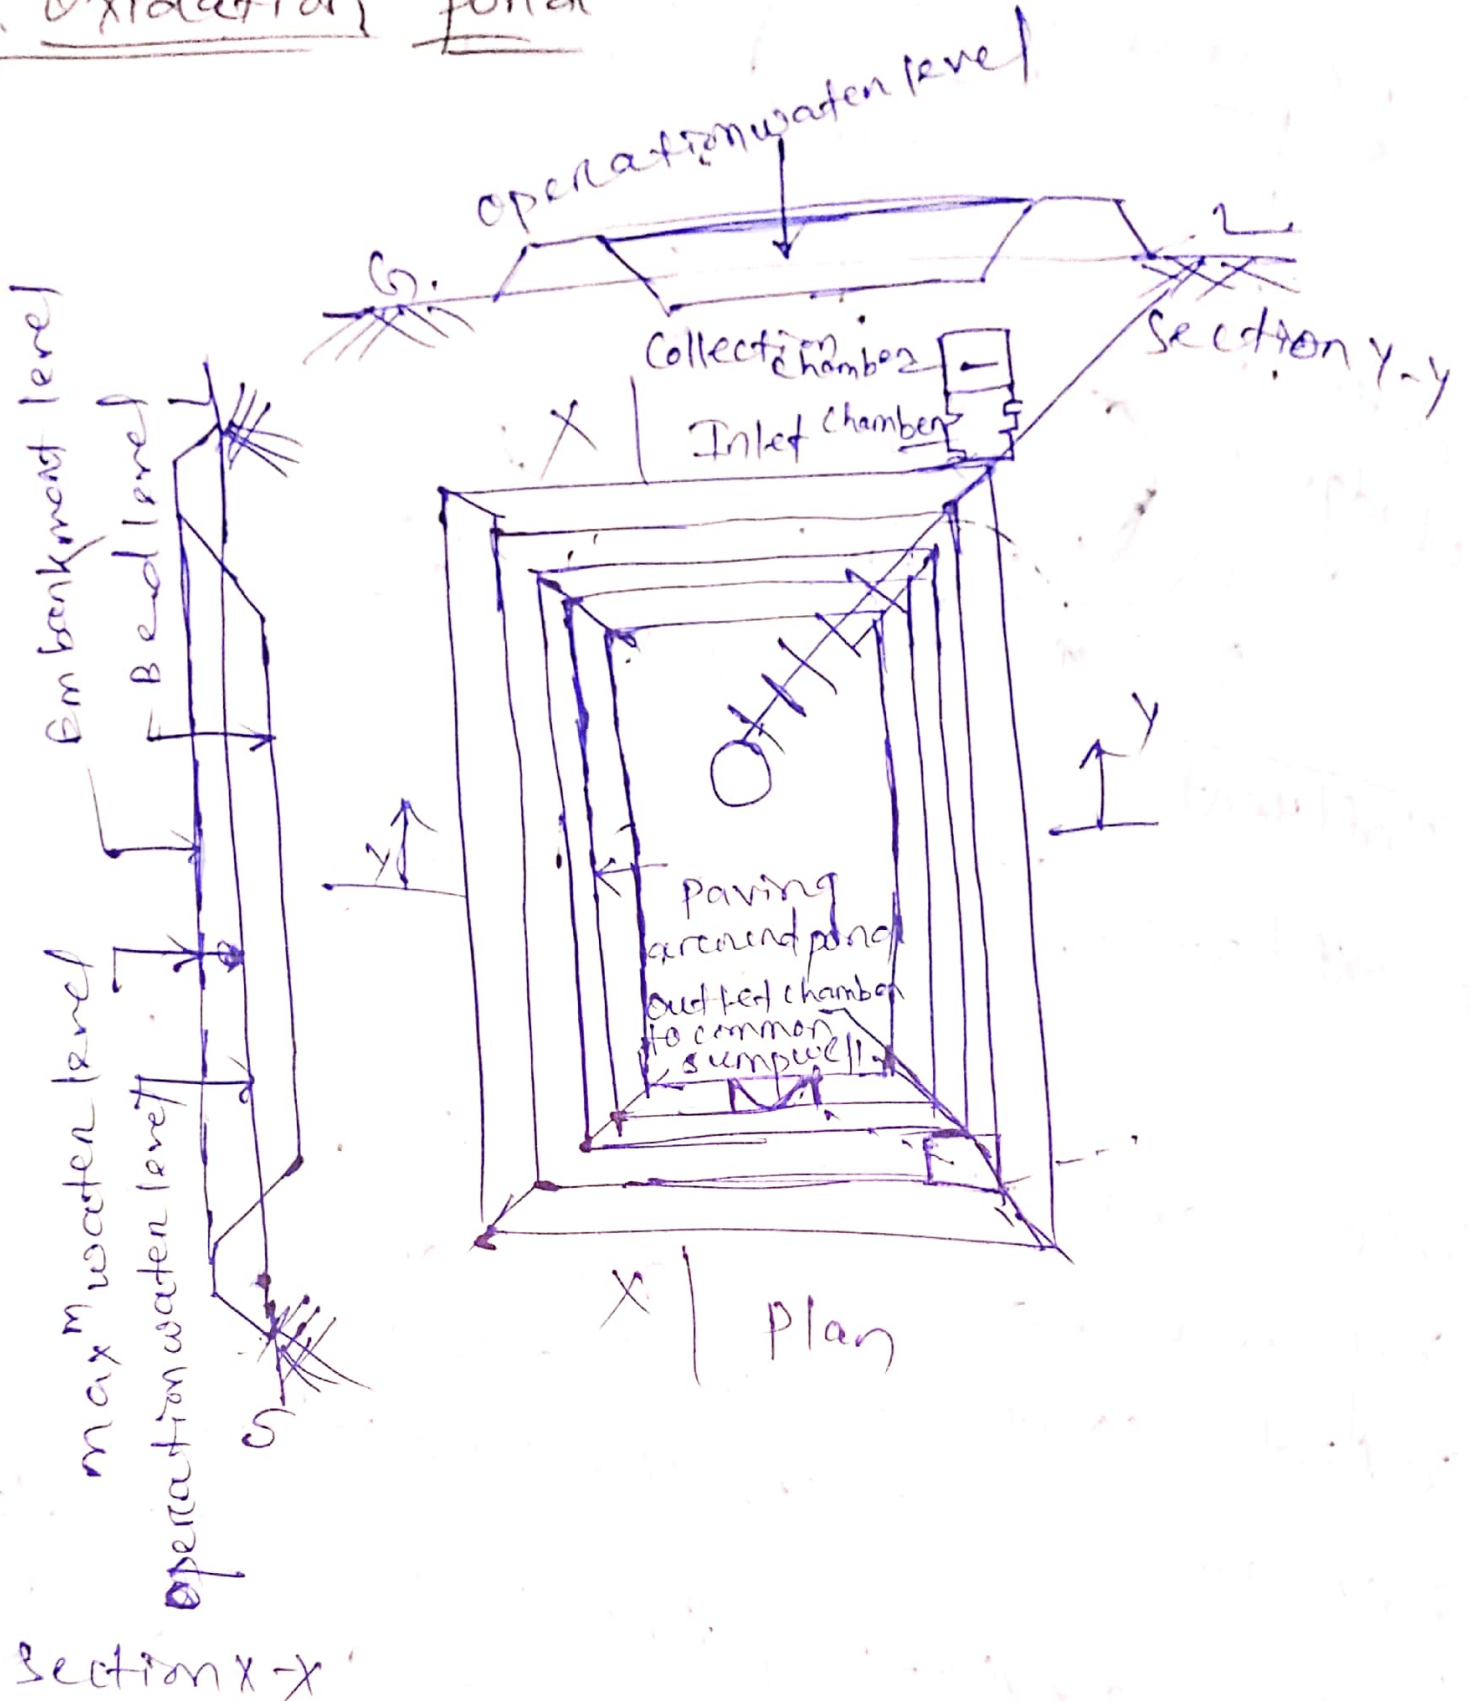 Oxidation Pond
Operation water level
G.
L
Section Y-Y
Collection
chamber
Inlet chamber
X
Embankment level
Bed level
L
Y
Y
paving
around pond
outlet chamber
to common
sumpwell
max^m water level
operation water level
X
Plan
G
Section X-X